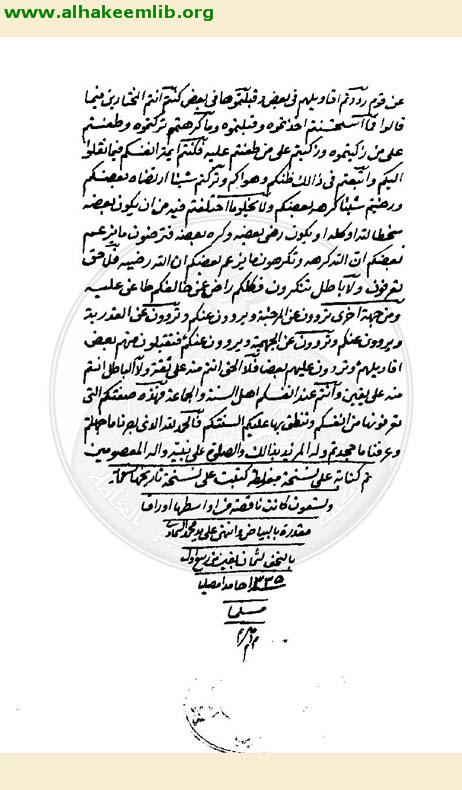 www.alhakeemlib.org
عن قوم رددتم اقاويلهم فى بعض وقبلتموها فى بعض كنتم انتم المختارين فيما
قالوا فما استحسنتم اخذتموه وقبلتموه وما كرهتم تركتموه وطعنتم
على من زكيتموه وزكيتم على من طعنتم عليه فكنتم ائمة انفسكم فيما نقلوا
اليكم واتبعتم فى ذالك ظنكم وهواكم وتركتم شيئا ارتضاه بعضكم
ورضيتم شيئا كرهه بعضكم ولا يخلو ما اختلفتم فيه من ان يكون بعضه
سخطا لله او كله او يكون رضى بعضه وكره بعضه فترضون ما يزعم
بعضكم ان الله كرهه وتكرهون ما يزعم بعضكم ان الله رضيه فلا حق
تعرفون ولا باطل تنكرون فكلكم راض عن خالفكم طاعن عليه
ومن جهة اخرى تروون عن المرجئة ويروون عنكم وتروون عن القدرية
ويروون عنكم وتروون عن الجهمية ويروون عنكم فتقبلون منهم بعض
اقاويلهم وتردون عليهم بعضا فلا الحق انتم منه على ثقة ولا الباطل انتم
منه على يقين وانتم عند انفسكم اهل السنة والجماعة فهذه صفتكم التى
تعرفونها من انفسكم وتنطق بها عليكم السنتكم فالحمد لله الذى بصرنا ما جهلتم
وعرفنا ما جحدتم وله المزيد بذالك والصلوة على نبيه واله المعصومين
تم كتابة على نسخة مغلطة كتبت على نسخة تاريخها
وتسعون كانت ناقصة فى اواسطها اوراقا
مقدرة بالبياض وانتهى على يد محمد السماوى
بالنجف لثمان بقين من ربيع اول
١٣٣٥ حامدا مصليا
مسلما